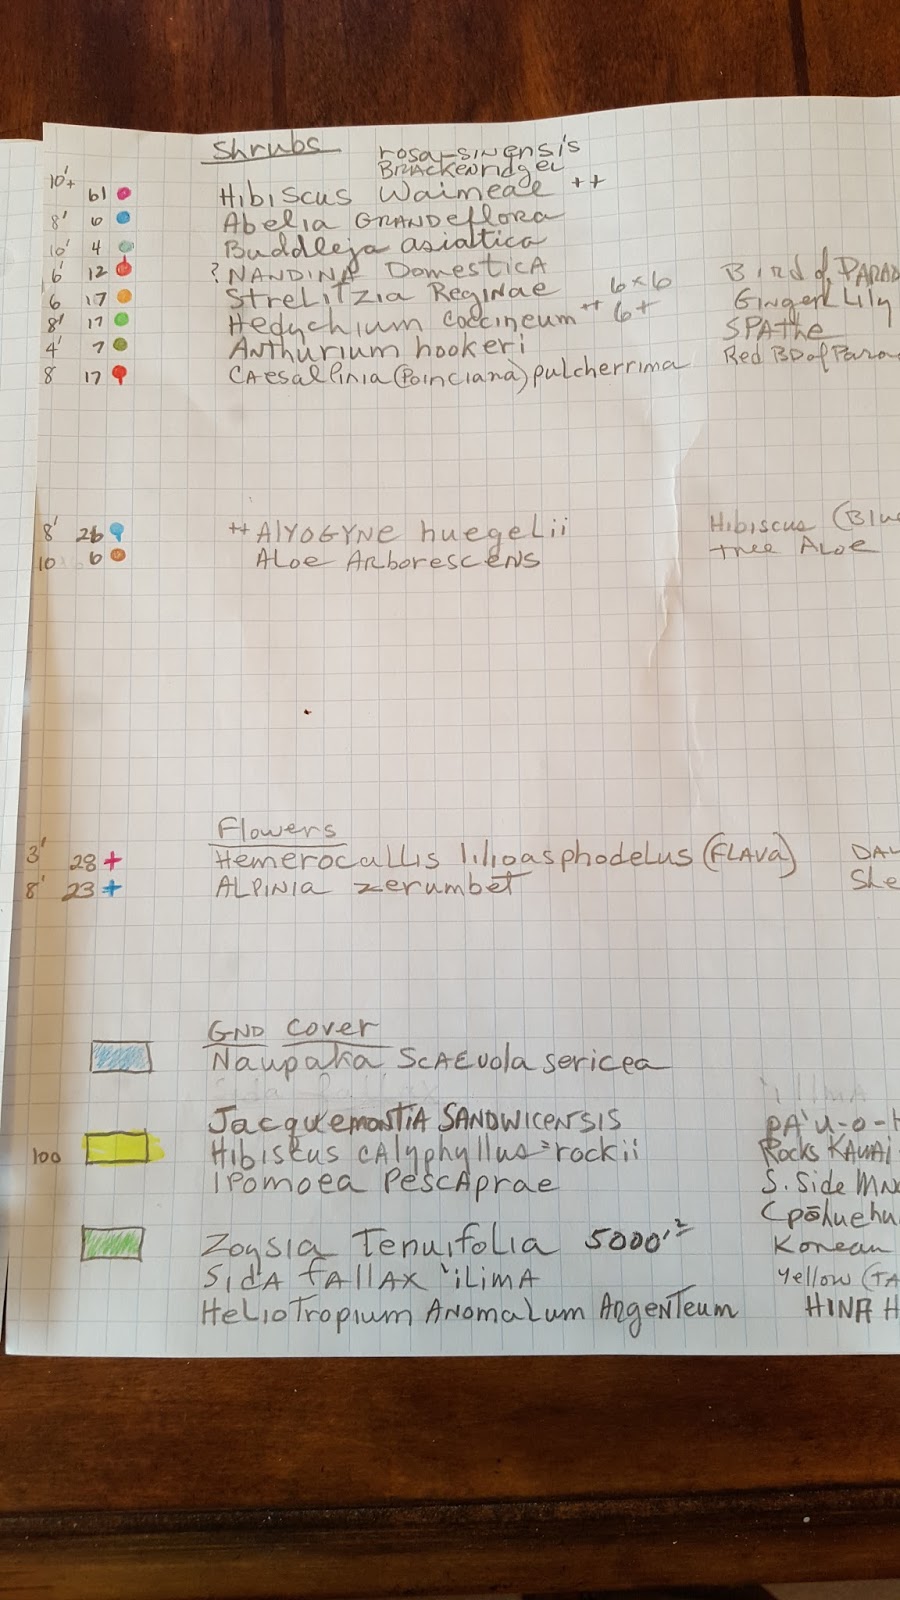 Shrubs
rosa-sinensis
Brackenridgei
10'+ 61 Hibiscus Waimeae ++
8' 6 Abelia Grandeflora
10' 4 Buddleja asiatica
6' 12 ? Nandina Domestica
6 17 Strelitzia Reginae 6x6 Bird of Parad
8' 17 Hedychium Coccineum ++ 6+ Ginger Lily
4' 7 Anthurium hookeri SPAthe
8 17 Caesalpinia (Poinciana) pulcherrima Red BD of Para
8' 26 ++ Alyogyne huegelii Hibiscus (Blue
10 6 Aloe Arborescens tree Aloe
Flowers
3' 28 + Hemerocallis lilioasphodelus (Flava) DAY
8' 23 + Alpinia zerumbet She
GND Cover
Naupaka Scaevola sericea
Jacquemontia Sandwicensis PA'U-O-H
100 Hibiscus calyphyllus = rockii Rocks KAUAI
Ipomoea Pescaprae S. Side
(pōhuehu
Zoysia Tenuifolia 5000'² Korean
Sida fallax 'ilima Yellow (TA
Heliotropium Anomalum Argenteum HINA H